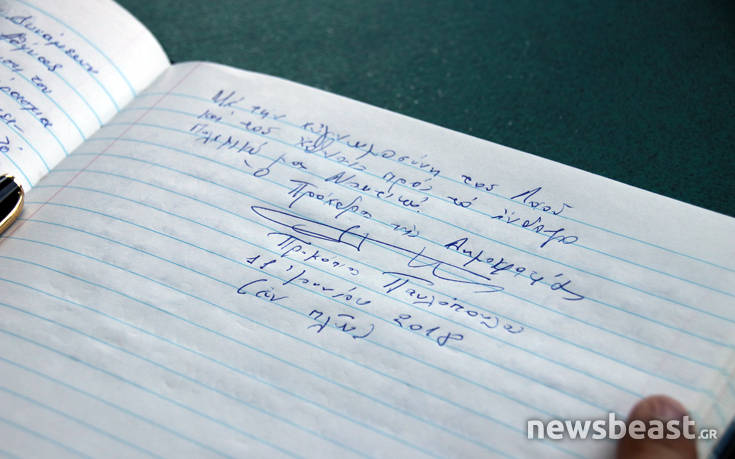 Δυνάμεων
του
Με την ευγνωμοσύνη του Λαού
και του Έθνους πρός τό ένδοξο
Πολεμικό μας Ναυτικό.
Ο Πρόεδρος της Δημοκρατίας
Προκόπιος Παυλόπουλος
11 Ιουνίου 2018
(εν πλώ)
newsbeast.GR